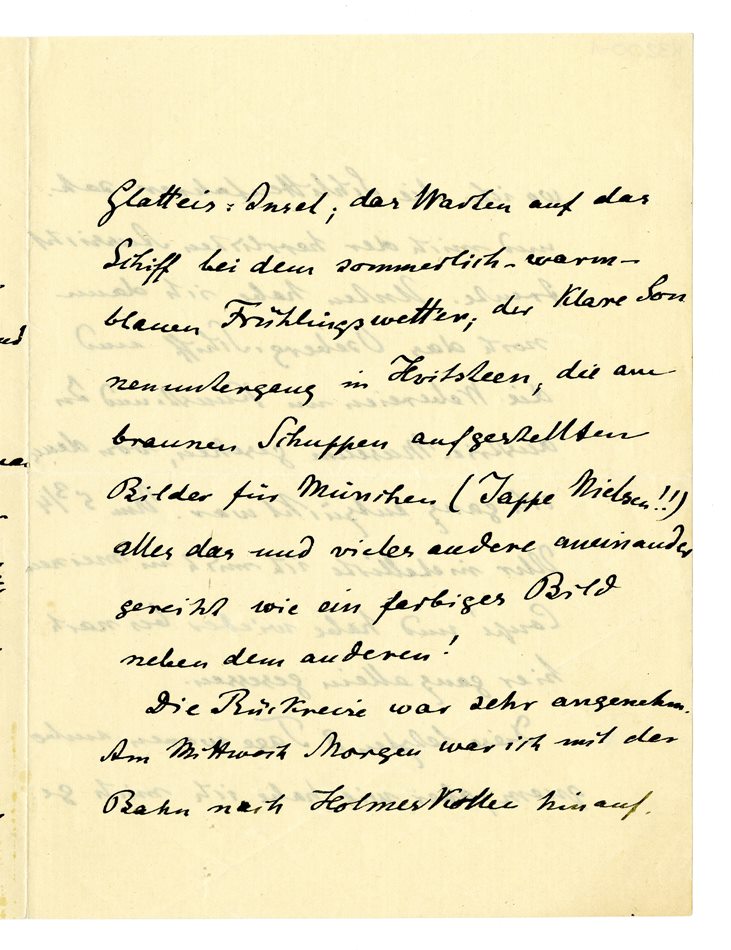 Glatteis-Insel; das Warten auf das
Schiff bei dem sommerlich-warm-
blauen Frühlingswetter; der klare Son
nenuntergang in Hvitsteen, die am
braunen Schuppen aufgestellten
Bilder für München (Jappe Nielsen!!)
alles das und vieles andere aneinander
gereiht wie ein farbiges Bild
neben dem anderen!
Die Rückreise war sehr angenehm.
Am Mittwoch Morgen war ich mit der
Bahn nach Holmenkollen hinauf.